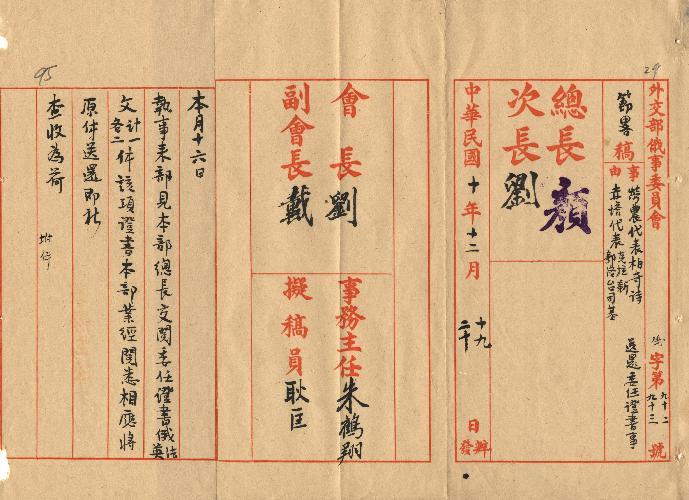 外交部俄事委員會
俄字第九十二九十三號
節畧稿
事由
勞農代表柏奇詩
赤塔代表克拉斬
郭洛台司基
送還委任證書事
總長顏
次長劉
中華民國十年十二月
十九
二十
日
辦
發
會長劉
副會長戴
事務主任朱鶴翔
擬稿員耿匡
本月十六日
執事來部見本部總長交閱委任證書俄英法
文計一各二件該項證書本部業經閱悉相應將
原件送還即祈
查收為荷
附件
29
95